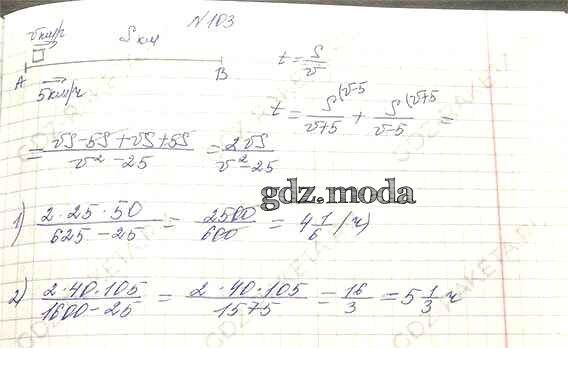 N 103
v км/ч S км
A B t = S/v
5 км/ч
t = S^(v-5/v+5 + S^(v+5/v-5 =
= vS - 5S + vS + 5S/v² - 25 = 2vS/v² - 25
gdz.moda
1) 2·25·50/625 - 25 = 2500/600 = 4 1/6 (ч)
2) 2·40·105/1600 - 25 = 2·40·105/1575 = 16/3 = 5 1/3 ч